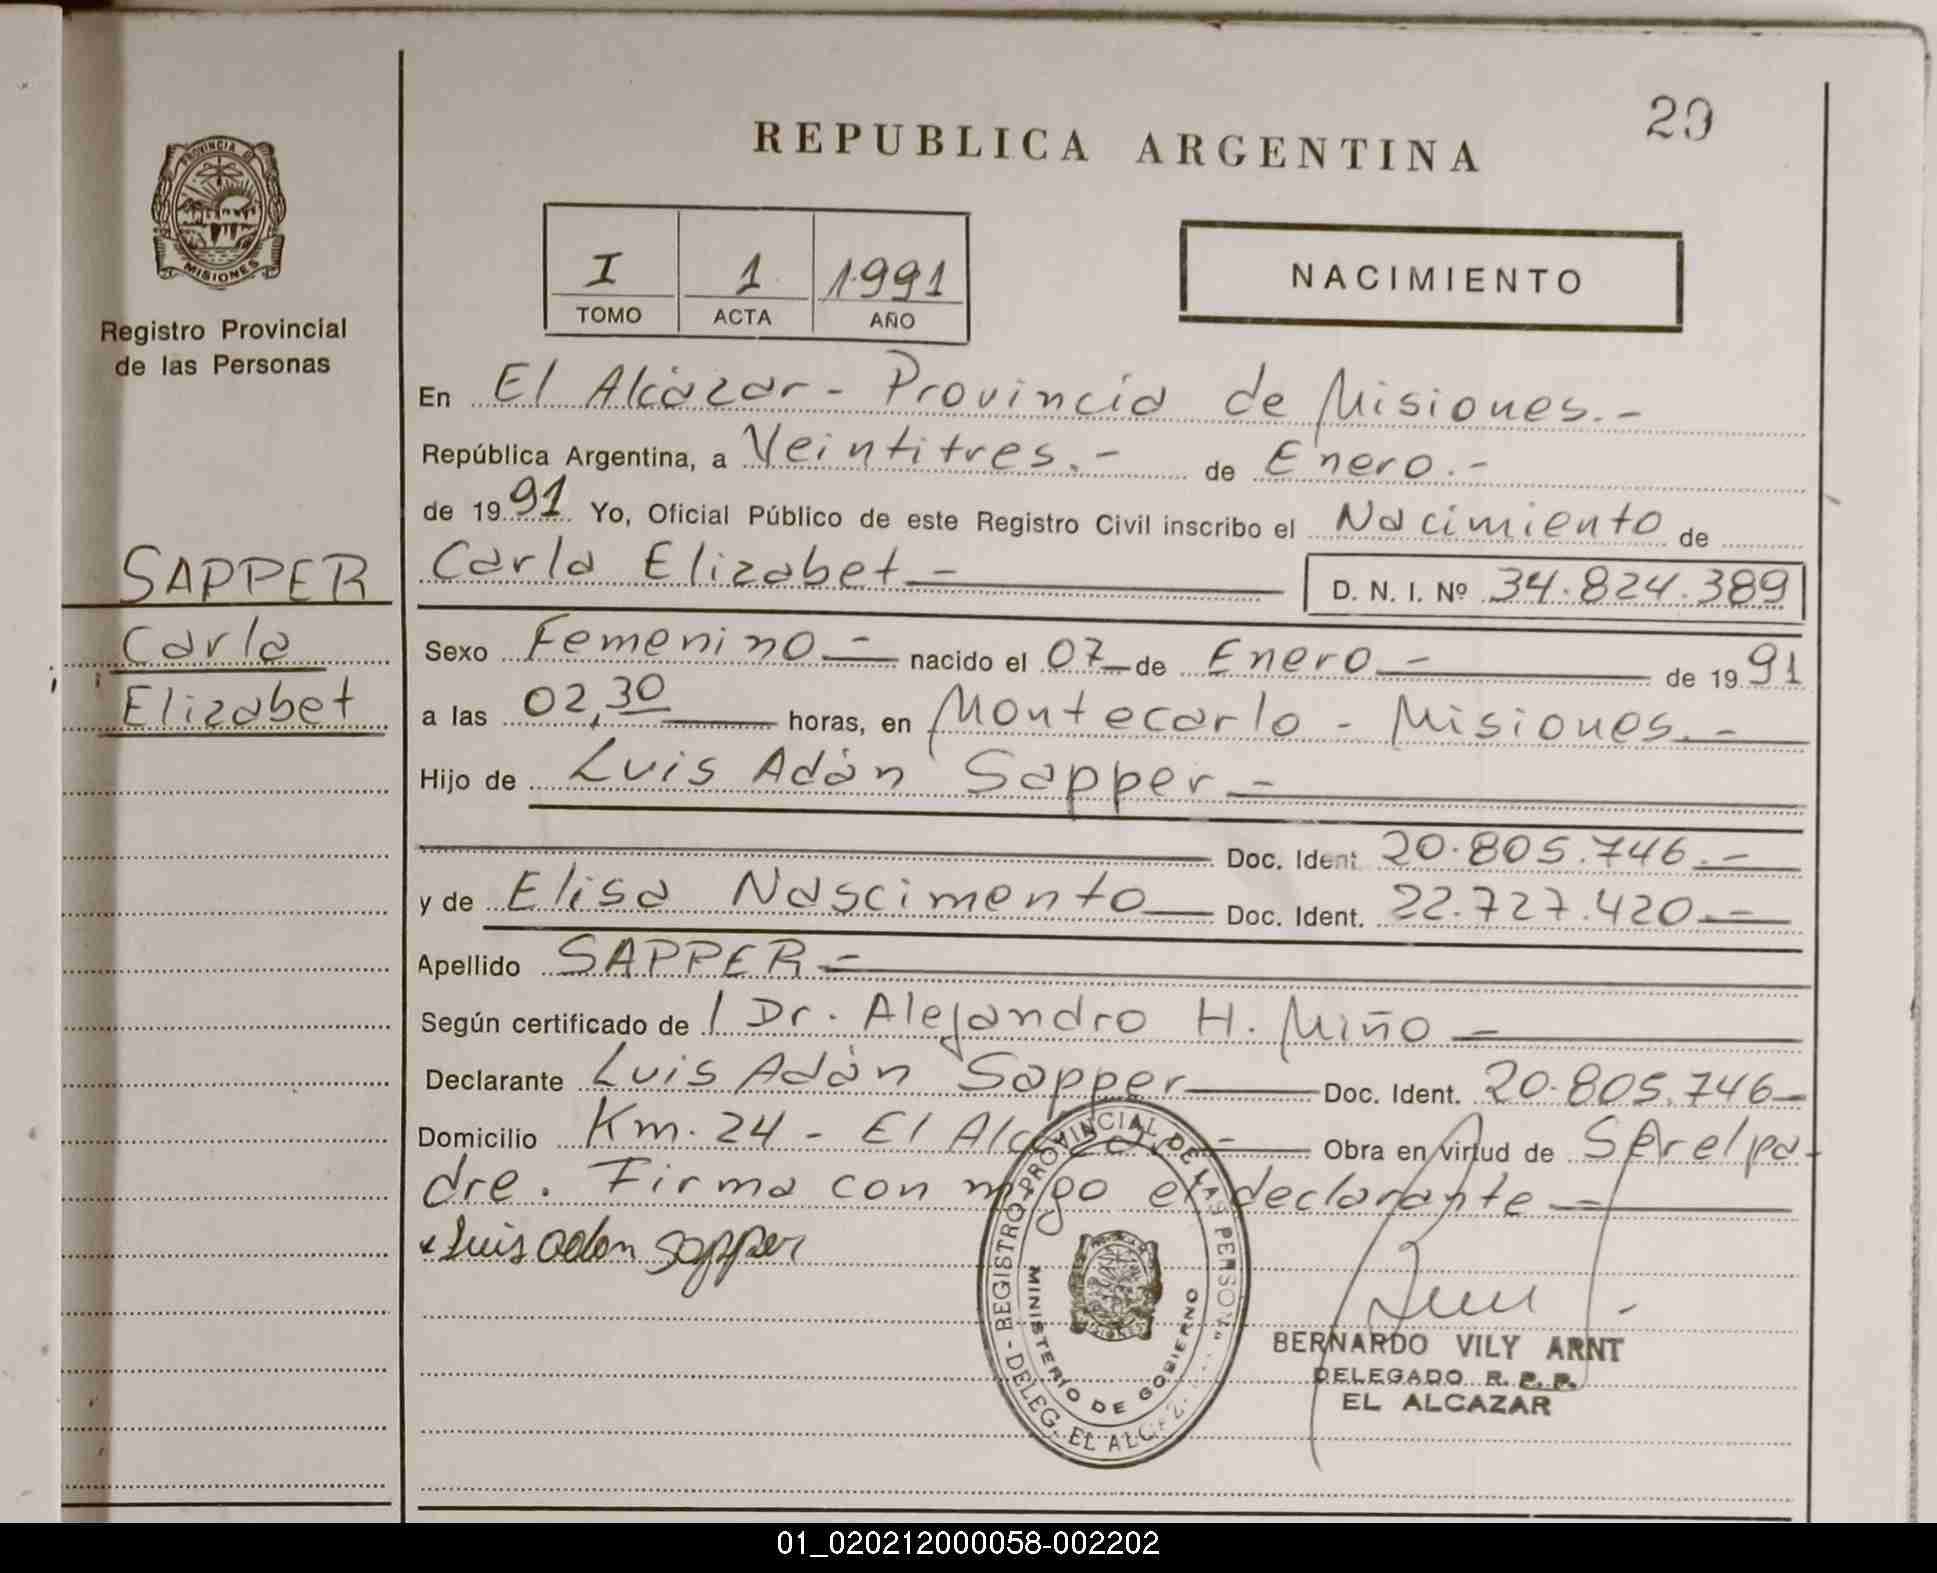 20
REPUBLICA ARGENTINA
PROVINCIA DE
MISIONES
Registro Provincial
de las Personas
I 1 1991
TOMO ACTA AÑO
NACIMIENTO
En El Alcázar - Provincia de Misiones.-
República Argentina, a Veintitres.- de Enero.-
de 1991 Yo, Oficial Público de este Registro Civil inscribo el Nacimiento de
SAPPER
Carla
Elizabet
Carla Elizabet - D. N. I. Nº 34.824.389
Sexo Femenino - nacido el 07 de Enero - de 1991
a las 02,30 horas, en Montecarlo - Misiones.-
Hijo de Luis Adán Sapper -
Doc. Ident. 20.805.746.-
y de Elisa Nascimento Doc. Ident. 22.727.420.-
Apellido SAPPER -
Según certificado de / Dr. Alejandro H. Miño -
Declarante Luis Adán Sapper Doc. Ident. 20.805.746-
Domicilio Km. 24 - El Alcázar - Obra en virtud de SER el pa-
dre. Firma con migo el declarante -
Luis adan sapper
REGISTRO PROVINCIAL DE LAS PERSON
MINISTERIO DE GOBIERNO
DELEG. EL ALC
BERNARDO VILY ARNT
DELEGADO R. P. P.
EL ALCAZAR
01_020212000058-002202